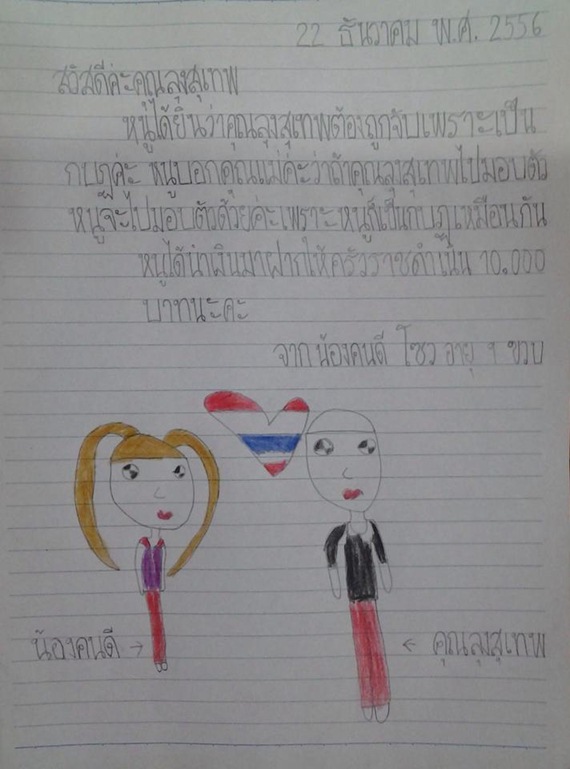 22 ธันวาคม พ.ศ. 2556
สวัสดีค่ะคุณลุงสุเทพ
หนูได้ยินว่าคุณลุงสุเทพต้องถูกจับเพราะเป็น
กบฎค่ะ หนูบอกคุณแม่ค่ะว่าถ้าคุณลุงสุเทพไปมอบตัว
หนูจะไปมอบตัวด้วยค่ะเพราะหนูก็เป็นกบฎเหมือนกัน
หนูได้นำเงินมาฝากให้ครัวราชดำเนิน 10.000
บาทนะคะ
จาก น้องคนดี โชว อายุ ขวบ
น้องคนดี →
← คุณลุงสุเทพ